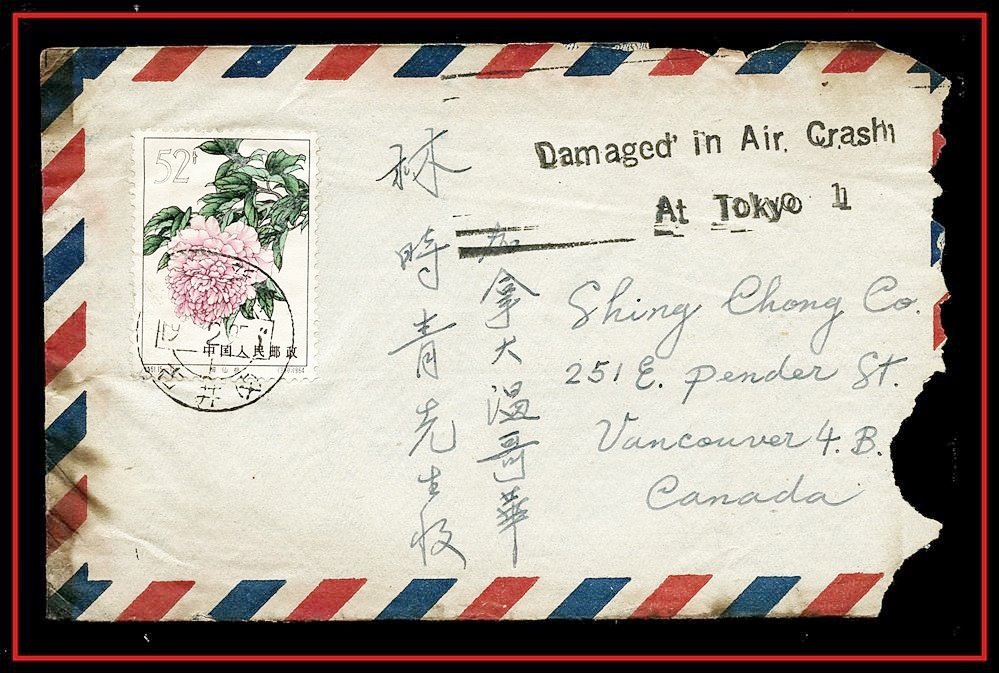 52f
中国人民邮政
Damaged in Air Crash
At Tokyo 1
加拿大温哥華
林時青先生收
Shing Chong Co.
251 E. Pender St.
Vancouver 4. B.
Canada